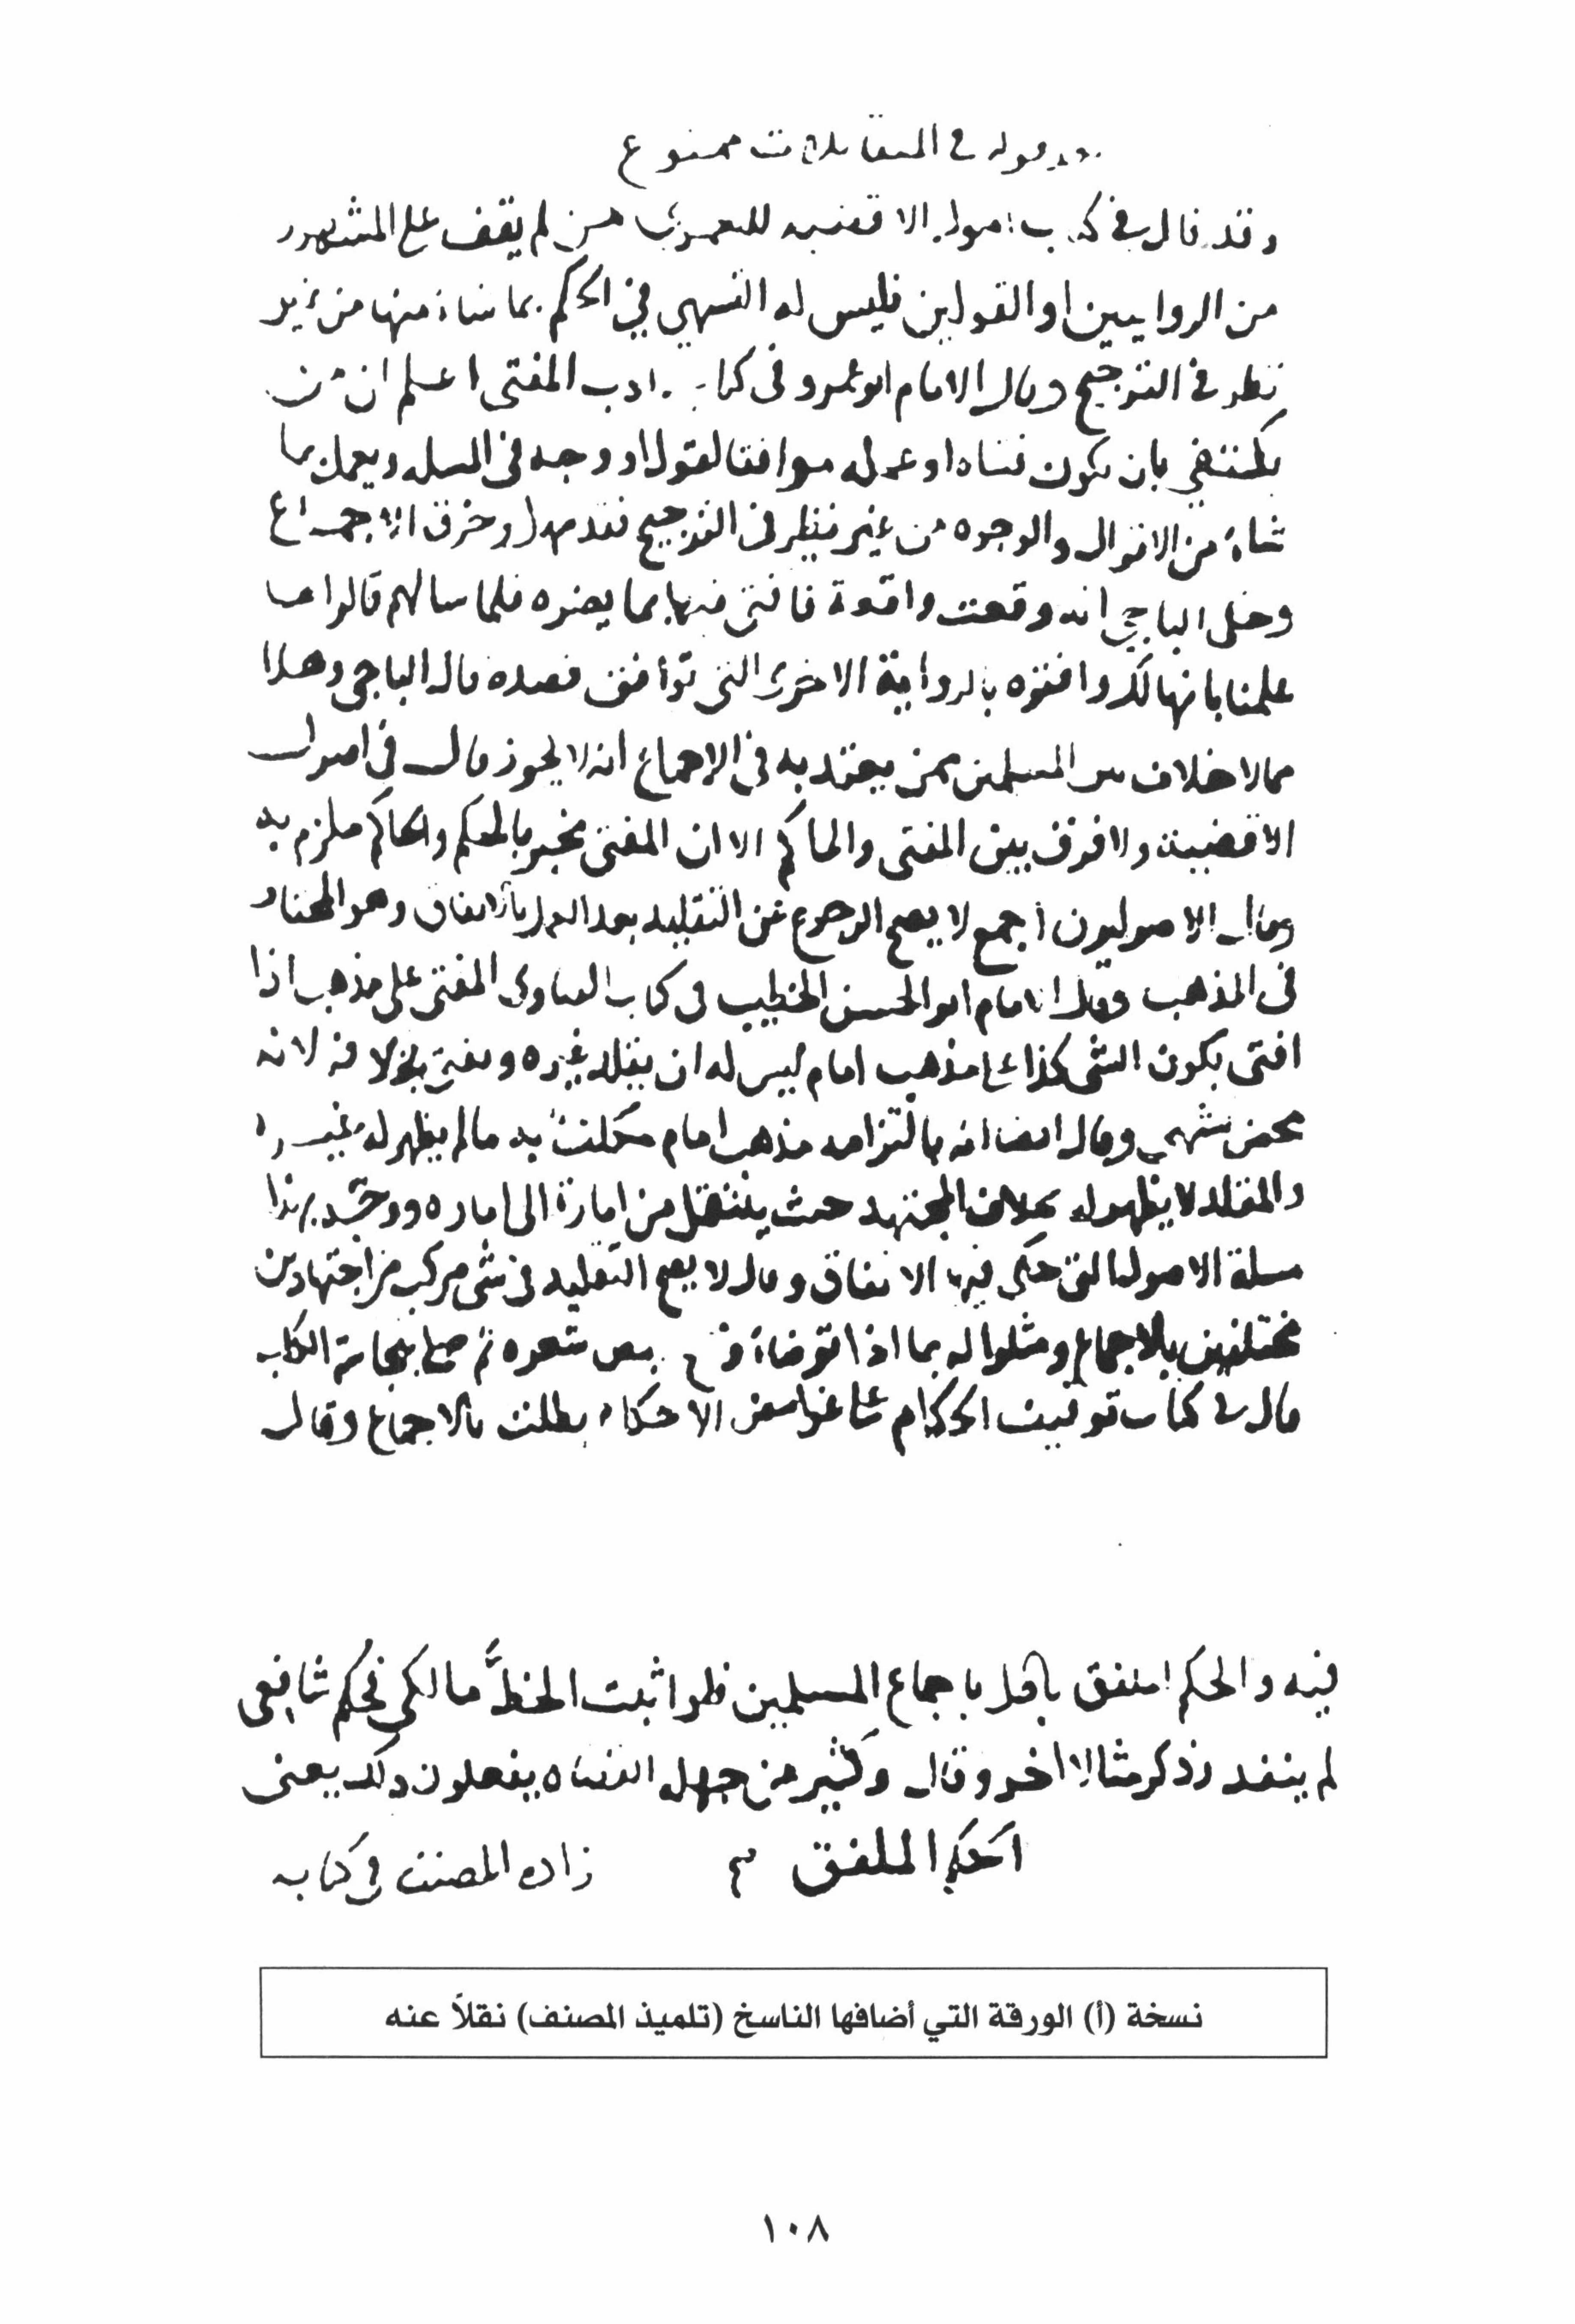 في المقابلات ممنوع
وقد قال في كتاب اصول الاقضيه لليعمري من لم يقف على المشهور
من الروايتين او القولين فليس له التشهي في الحكم بما شاء منها من غير
نظر في الترجيح وقال الامام ابو عمرو في كتاب ادب المفتي اعلم ان من
يكتفي بان يكون فتياه او عمله موافقا لقول او وجه في المسله ويعمل بما
شاء من الاقوال والوجوه من غير نظر في الترجيح فقد جهل وخرق الاجماع
وحكى الباجي انه وقعت واقعة فافتى فيها بما يضره فلما سالهم قالوا ما
علمنا بانها لك وافتوه بالرواية الاخرى التي توافق قصده قال الباجي وهذا
مما لا خلاف بين المسلمين ممن يعتد به في الاجماع انه لا يجوز قال في اصول
الاقضية ولا فرق بين المفتي والحاكم الا ان المفتي مخبر بالحكم والحاكم ملزم به
وقال الاصوليون اجمع لا يصح الرجوع عن التقليد بعد العمل بالاتفاق وهو المختار
في المذهب وقال الامام ابو الحسن الخطيب في كتاب الفتاوى المفتي على مذهب اذا
افتى بكون الشي كذا على مذهب امام ليس له ان يقلد غيره ويفتي بخلافه لانه
محض تشهي وقال ايضا انه بالتزامه مذهب امام مكلف به ما لم يظهر له غيره
والمقلد لا يظهر له بخلاف المجتهد حيث ينتقل من امارة الى اماره ووجه بهذا
مسلة الاصول التي حكى فيها الاتفاق وقال لا يصح التقليد في شي مركب من اجتهادين
مختلفين بالاجماع ومثلوا له بما اذا توضاء ومسح بعض شعره ثم صلى بنجاسة الكلب
قال في كتاب توقيف الحكام على غوامض الاحكام بطلت بالاجماع وقال
فيه والحكم الملفق باطل باجماع المسلمين فلو اثبت الخط مالكي فحكم شافعي
لم ينفذ وذكر مثالا اخر وقال وكثير من جهله القضاه يفعلون ذلك يعني
الحكم الملفق
زاده المصنف في كتابه
نسخة (أ) الورقة التي أضافها الناسخ (تلميذ المصنف) نقلاً عنه
١٠٨